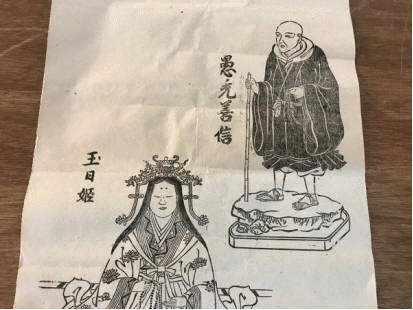 愚禿善信
玉日姫